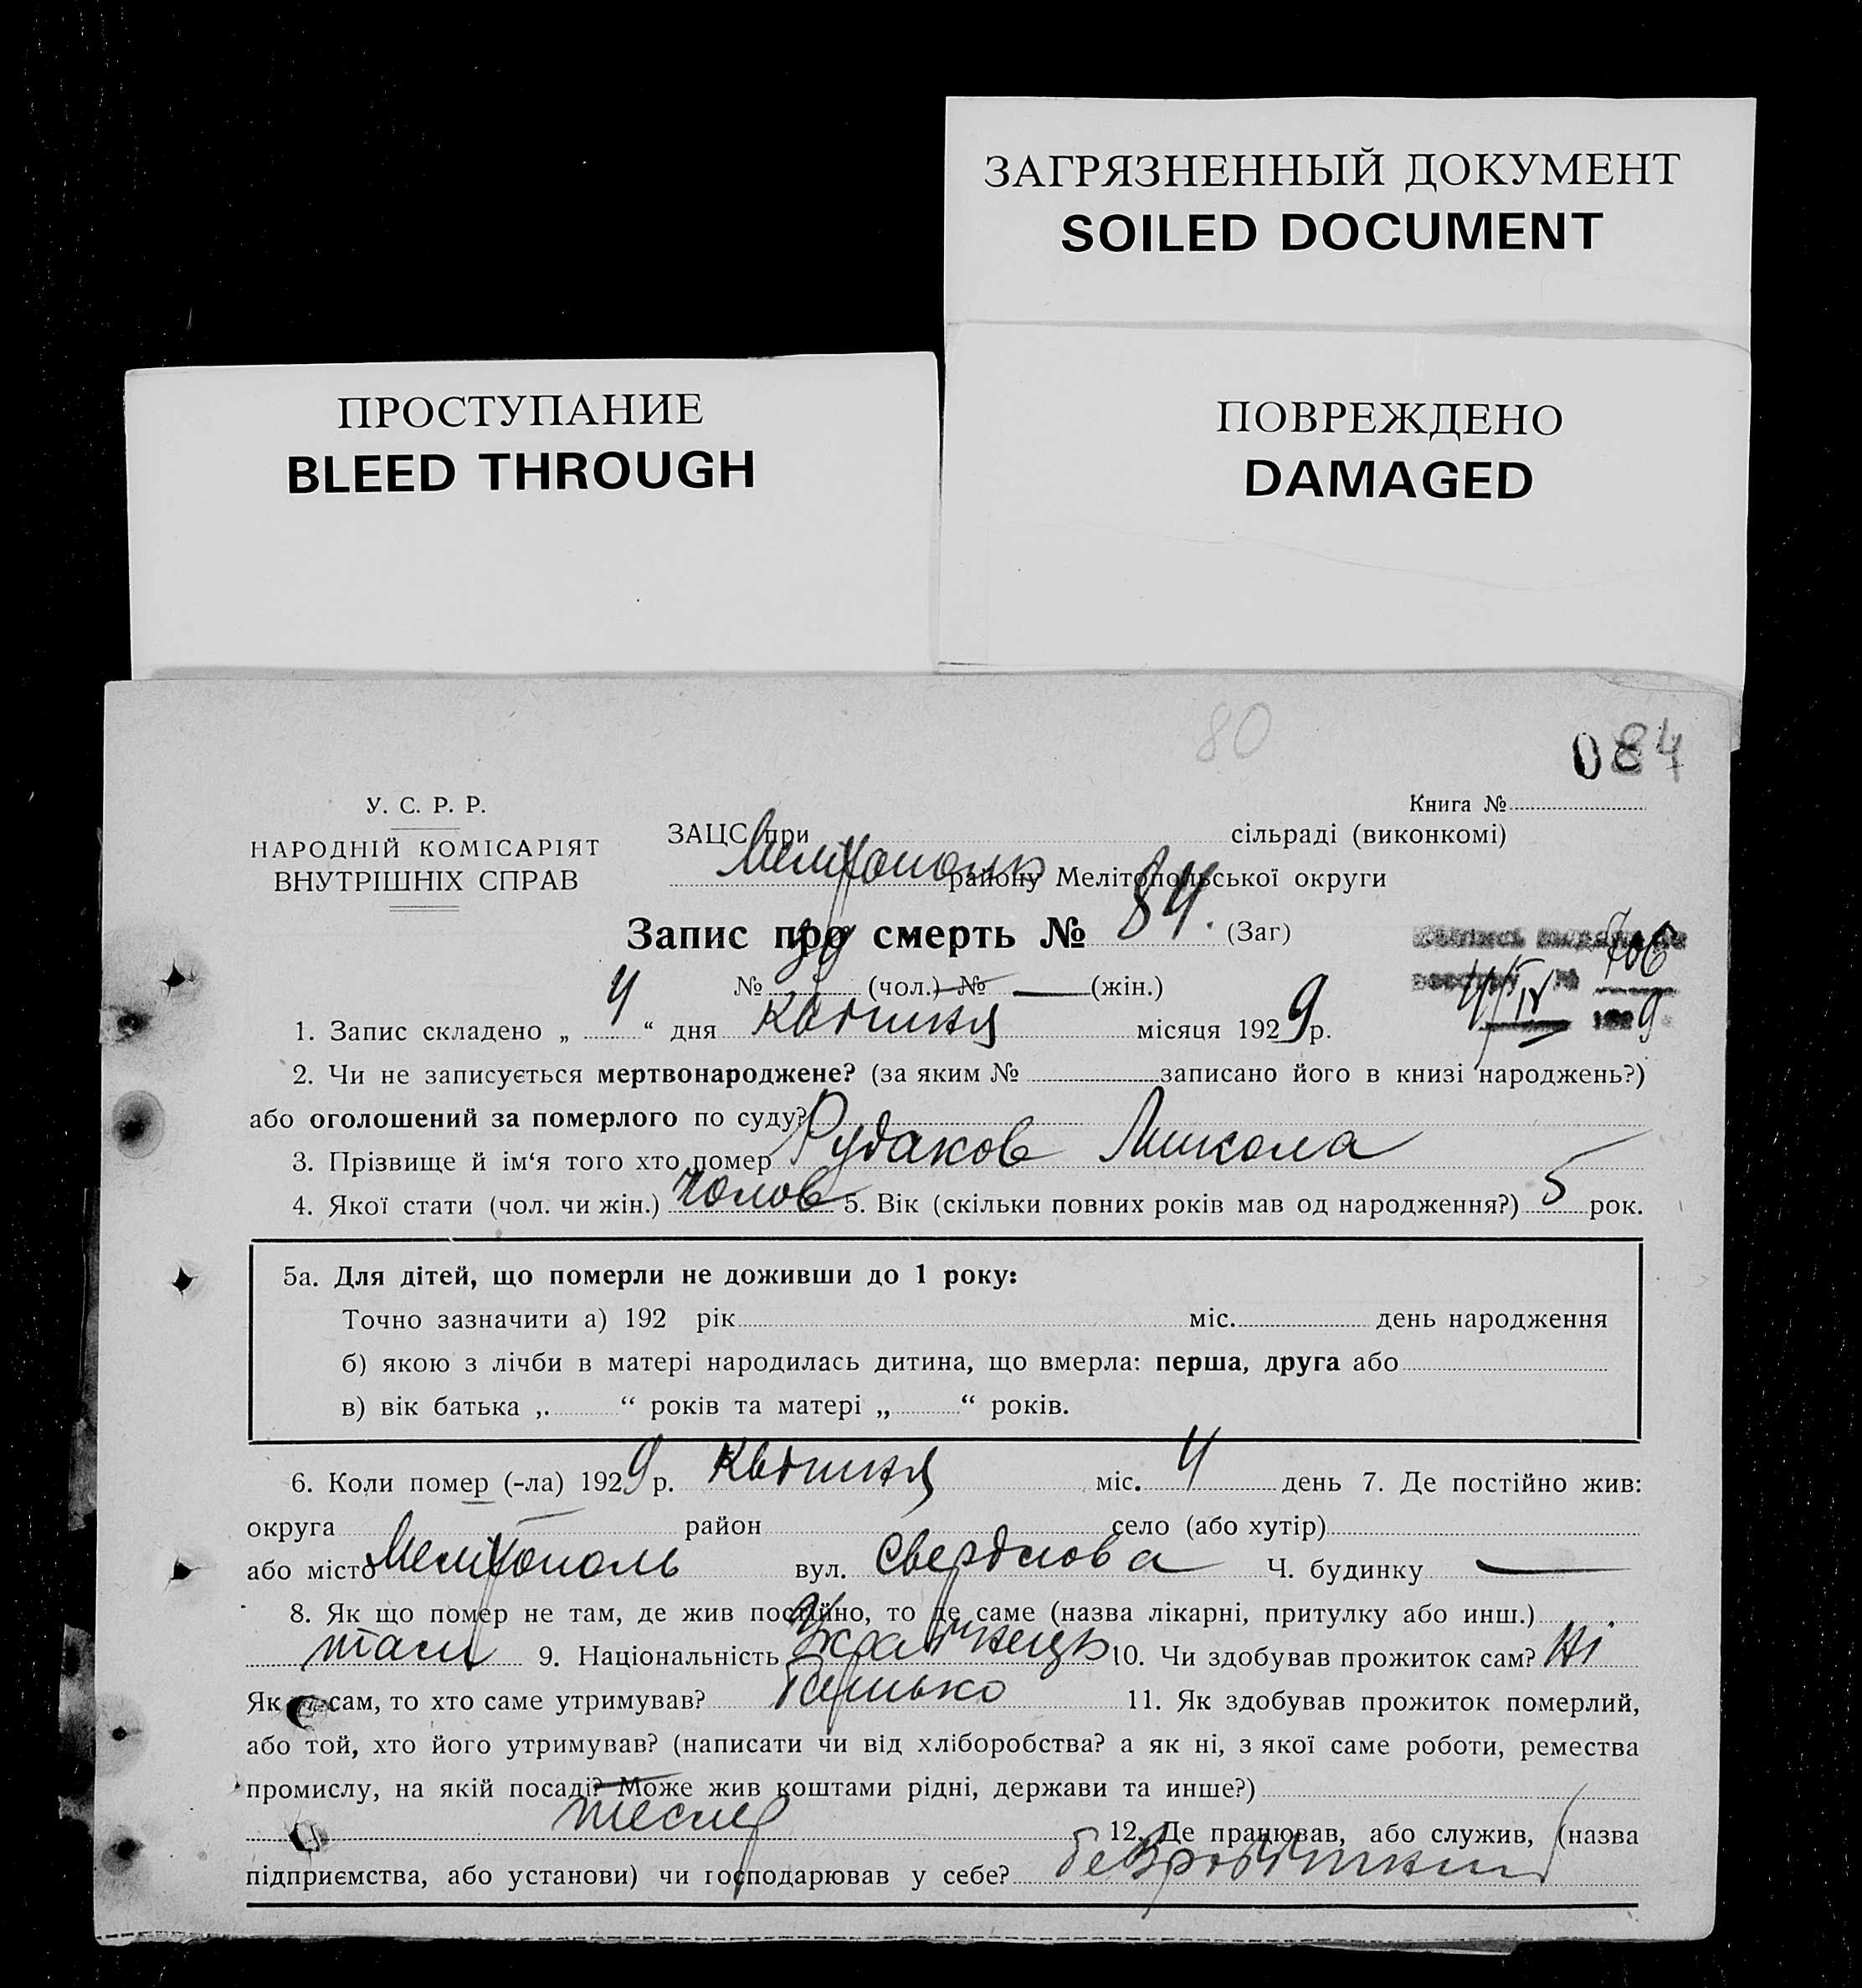 ЗАГРЯЗНЕННЫЙ ДОКУМЕНТ
SOILED DOCUMENT
ПРОСТУПАНИЕ
BLEED THROUGH
ПОВРЕЖДЕНО
DAMAGED
80
084
У. С. Р. Р.
НАРОДНІЙ КОМІСАРІЯТ
ВНУТРІШНІХ СПРАВ
Книга №
ЗАЦС при сільраді (виконкомі)
Мелітополь району Мелітопольської округи
Запис про смерть № 84. (Заг)
№ (чол.) № — (жін.)
706
4/IV 1929
1. Запис складено „ 4 “ дня Квітня місяця 1929 р.
2. Чи не записується мертвонароджене? (за яким № записано його в книзі народжень?)
або оголошений за померлого по суду?
3. Прізвище й ім‘я того хто помер Рудаков Микола
4. Якої стати (чол. чи жін.) Чолов 5. Вік (скільки повних років мав од народження?) 5 рок.
5а. Для дітей, що померли не доживши до 1 року:
Точно зазначити а) 192 рік міс. день народження
б) якою з лічби в матері народилась дитина, що вмерла: перша, друга або
в) вік батька „ “ років та матері „ “ років.
6. Коли помер (-ла) 1929 р. Квітня міс. 4 день 7. Де постійно жив:
округа район село (або хутір)
або місто Мелітополь вул. Свердлова Ч. будинку —
8. Як що помер не там, де жив постійно, то де саме (назва лікарні, притулку або инш.)
там 9. Національність Українець 10. Чи здобував прожиток сам? Ні
Як не сам, то хто саме утримував? Батько 11. Як здобував прожиток померлий,
або той, хто його утримував? (написати чи від хліборобства? а як ні, з якої саме роботи, ремества
промислу, на якій посаді? Може жив коштами рідні, держави та инше?)
тесляр 12. Де працював, або служив, (назва
підприємства, або установи) чи господарював у себе? безробітний